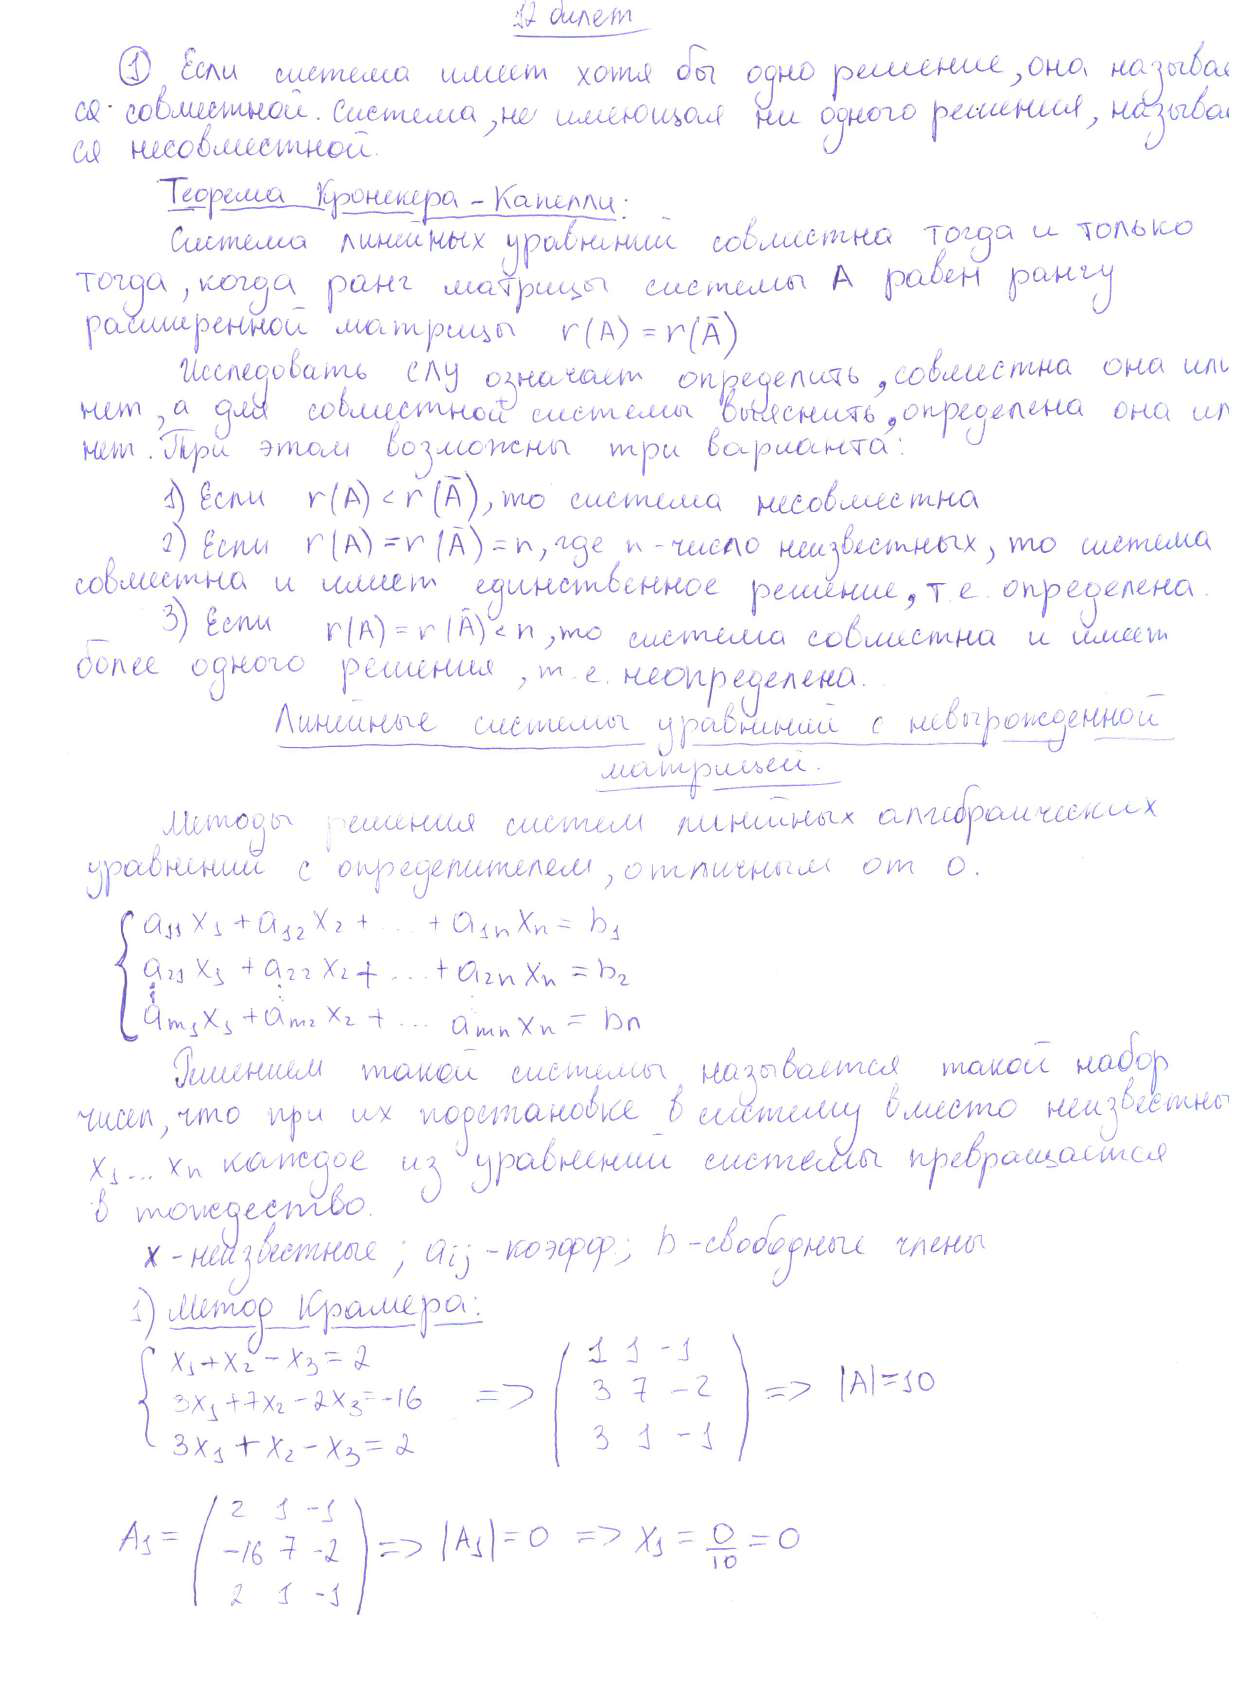 12 билет
① Если система имеет хотя бы одно решение, она называе
ся совместной. Система, не имеющая ни одного решения, называе
ся несовместной.
Теорема Кронекера - Капелли:
Система линейных уравнений совместна тогда и только
тогда, когда ранг матрицы системы A равен рангу
расширенной матрицы r(A) = r(Ā)
Исследовать СЛУ означает определить, совместна она или
нет, а для совместной системы выяснить, определена она ил
нет. При этом возможны три варианта:
1) Если r(A) < r(Ā), то система несовместна
2) Если r(A) = r(Ā) = n, где n - число неизвестных, то система
совместна и имеет единственное решение, т.е. определена.
3) Если r(A) = r(Ā) < n, то система совместна и имеет
более одного решения, т.е. неопределена.
Линейные системы уравнений с невырожденной
матрицей.
Методы решения систем линейных алгебраических
уравнений с определителем, отличным от 0.
a₁₁x₁ + a₁₂x₂ + ... + a₁ₙxₙ = b₁
a₂₁x₁ + a₂₂x₂ + ... + a₂ₙxₙ = b₂
aₘ₁x₁ + aₘ₂x₂ + ... aₘₙxₙ = bₙ
Решением такой системы называется такой набор
чисел, что при их подстановке в систему вместо неизвестны
x₁ ... xₙ каждое из уравнений системы превращается
в тождество.
x - неизвестные; aᵢⱼ - коэфф.; b - свободные члены
1) Метод Крамера:
x₁ + x₂ - x₃ = 2
3x₁ + 7x₂ - 2x₃ = -16
3x₁ + x₂ - x₃ = 2
=>
1 1 -1
3 7 -2
3 1 -1
=> |A| = 10
A₁ =
2 1 -1
-16 7 -2
2 1 -1
=> |A₁| = 0 => x₁ = 0/10 = 0